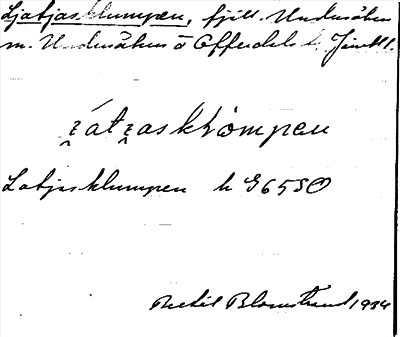 Ljatjasklumpen, fjäll. Undersåker
m. Undersåkers o Offerdals s. Jämtl.
ʒát ʒasklòmpen
Latjasklumpen h G65SO
Bertil Blomstrand 1934